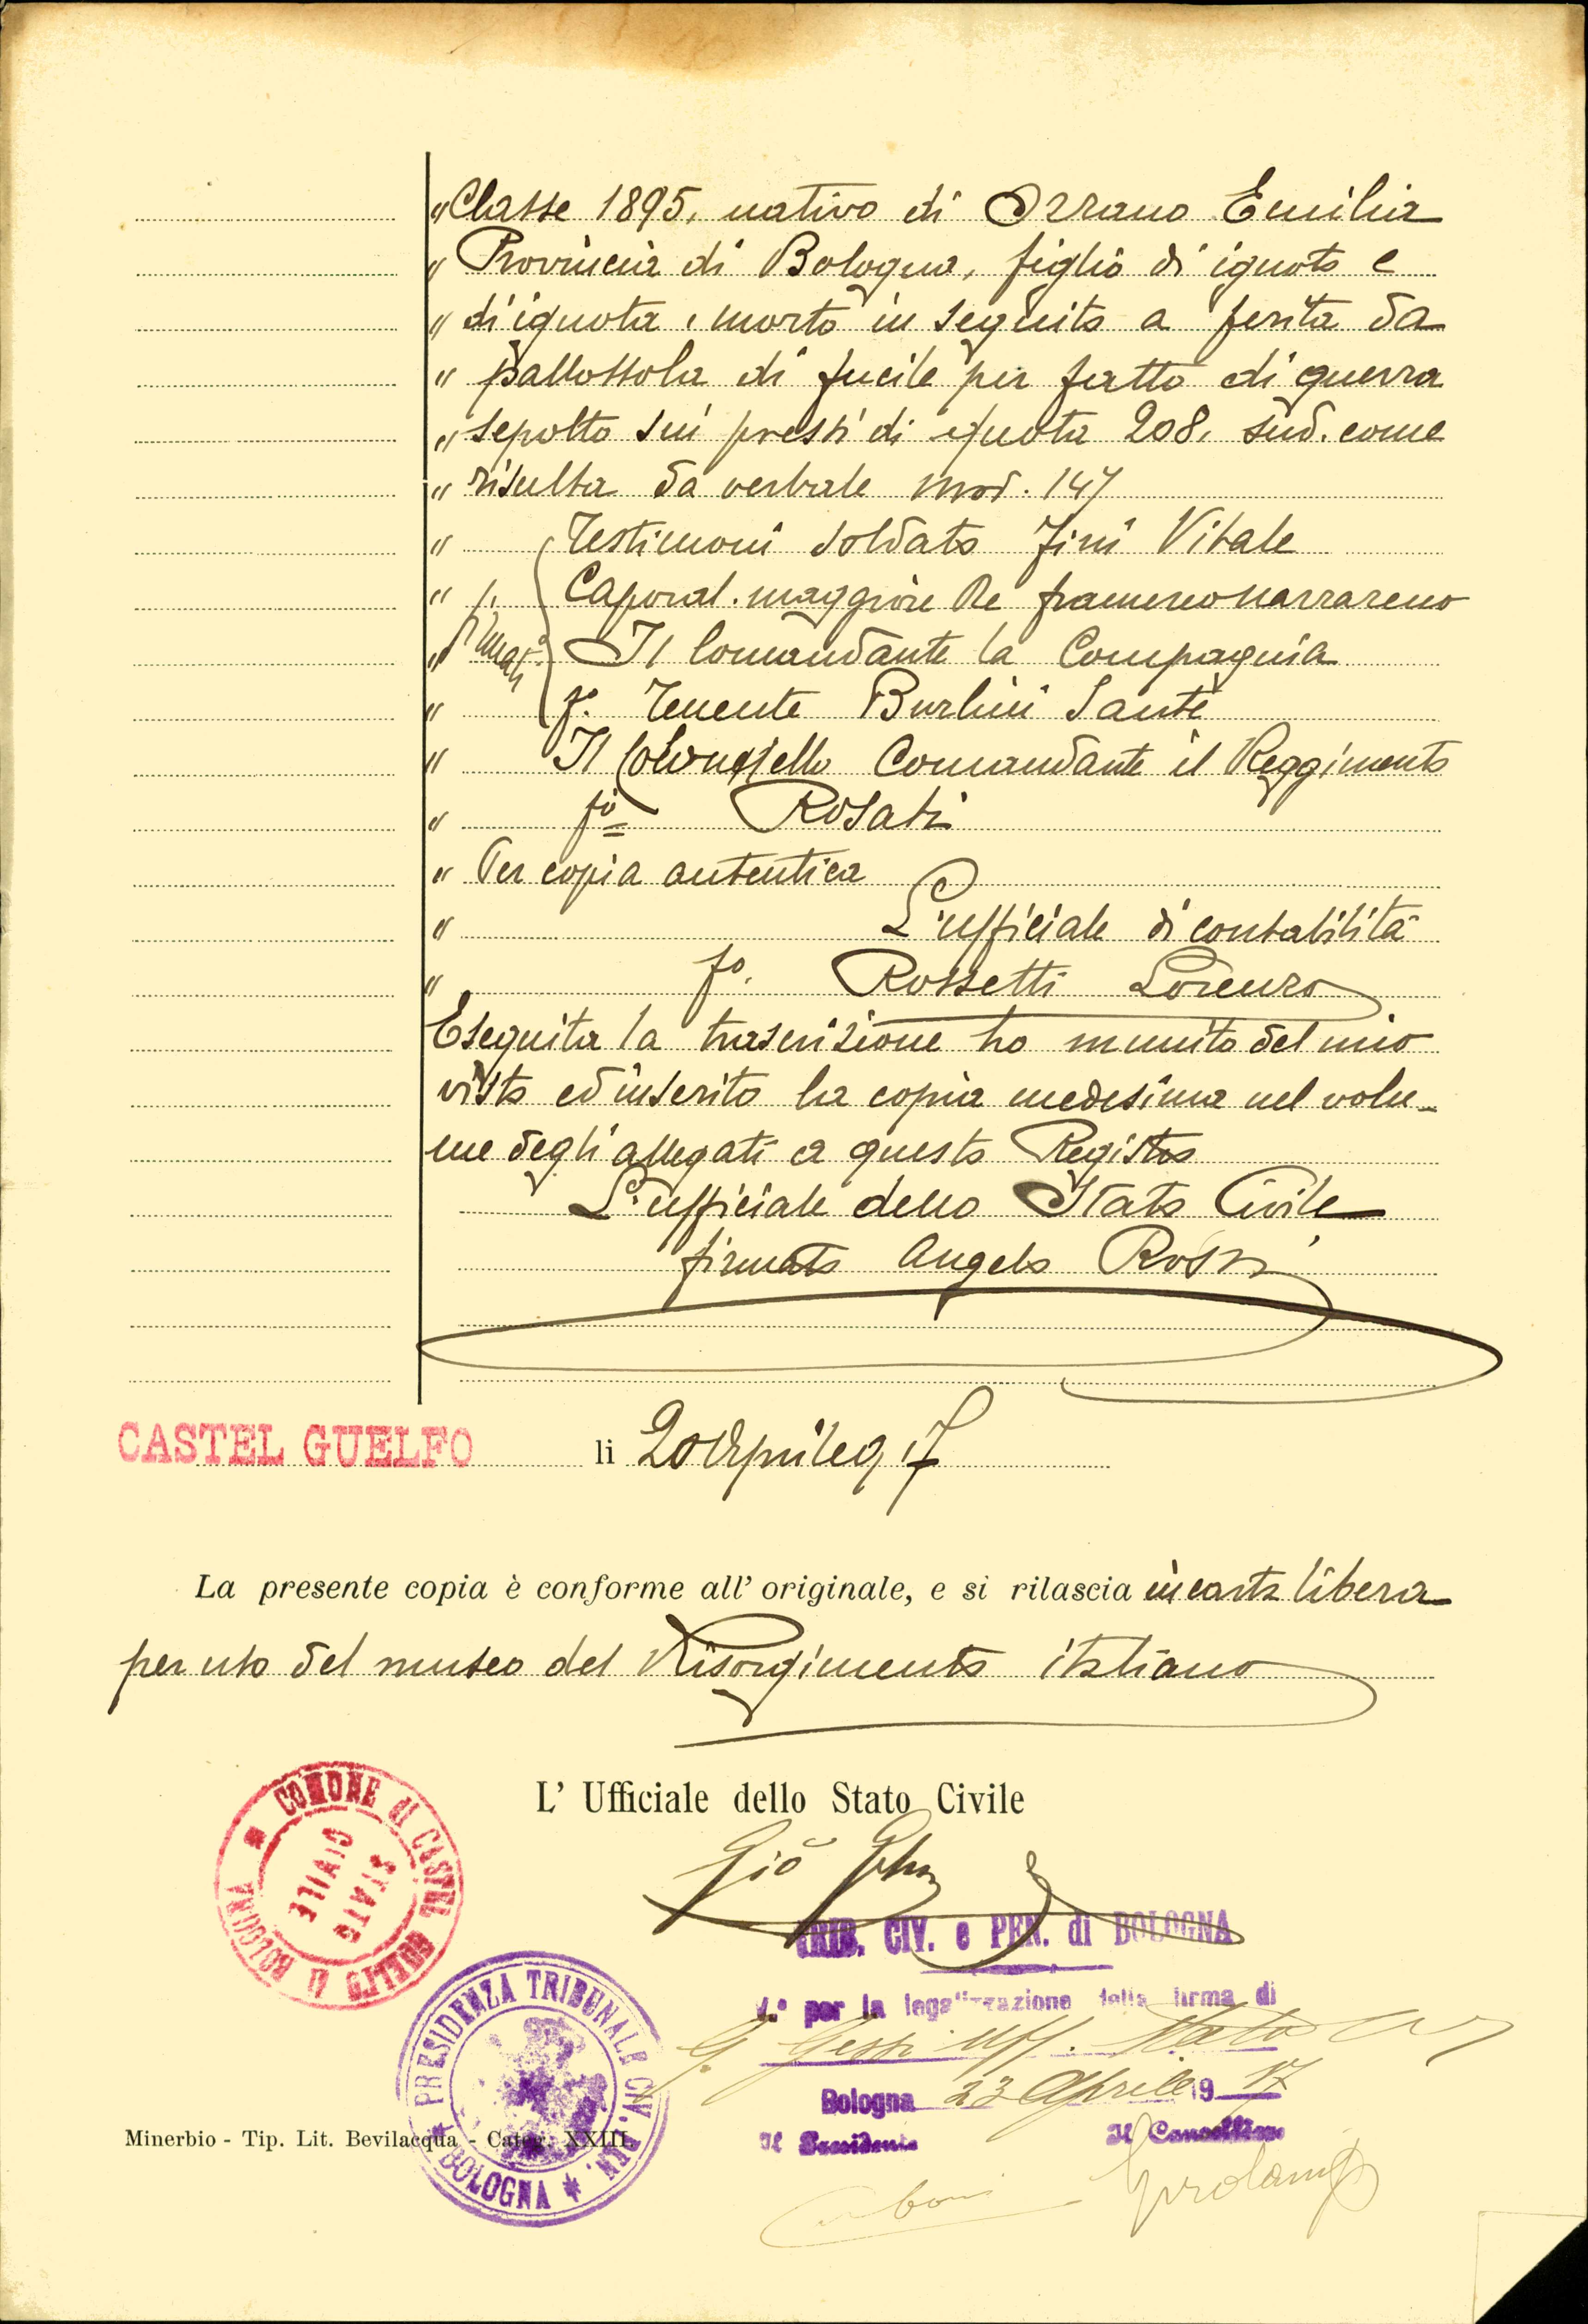 " Classe 1895, nativo di Ozzano Emilia
" Provincia di Bologna, figlio di ignoto e
" di ignota, morto in seguito a ferita da
" pallottola di fucile per fatto di guerra
" sepolto sui pressi di quota 208, sud. come
" risulta da verbale mod. 147
" Testimoni soldato Fini Vitale
" Caporal. maggiore Re
" firmati Il Comandante la Compagnia
" f. Tenente Burlini Sante
" Il Colonnello Comandante il Reggimento
" fo Rosati
" Per copia autentica
" L'ufficiale di contabilità
" fo. Rossetti Lorenzo
Eseguita la trascrizione ho munito del mio
visto ed inserito la copia medesima nel volu-
me degli allegati a questo Registro
L'ufficiale dello Stato Civile
firmato Angelo Rossi
CASTEL GUELFO li 20 Aprile 917
La presente copia è conforme all' originale, e si rilascia in carta libera
per uso del museo del Risorgimento italiano
L' Ufficiale dello Stato Civile
Gio
COMUNE di CASTEL GUELFO di BOLOGNA
STATO CIVILE
TRIB. CIV. e PEN. di BOLOGNA
V.° per la legalizzazione della firma di
G. Gessi Uff. Stato Civ
Bologna 23 Aprile 1917
Il Presidente Il Cancelliere
PRESIDENZA TRIBUNALE CIV. PEN. BOLOGNA
Minerbio - Tip. Lit. Bevilacqua - Categ. XXIII.